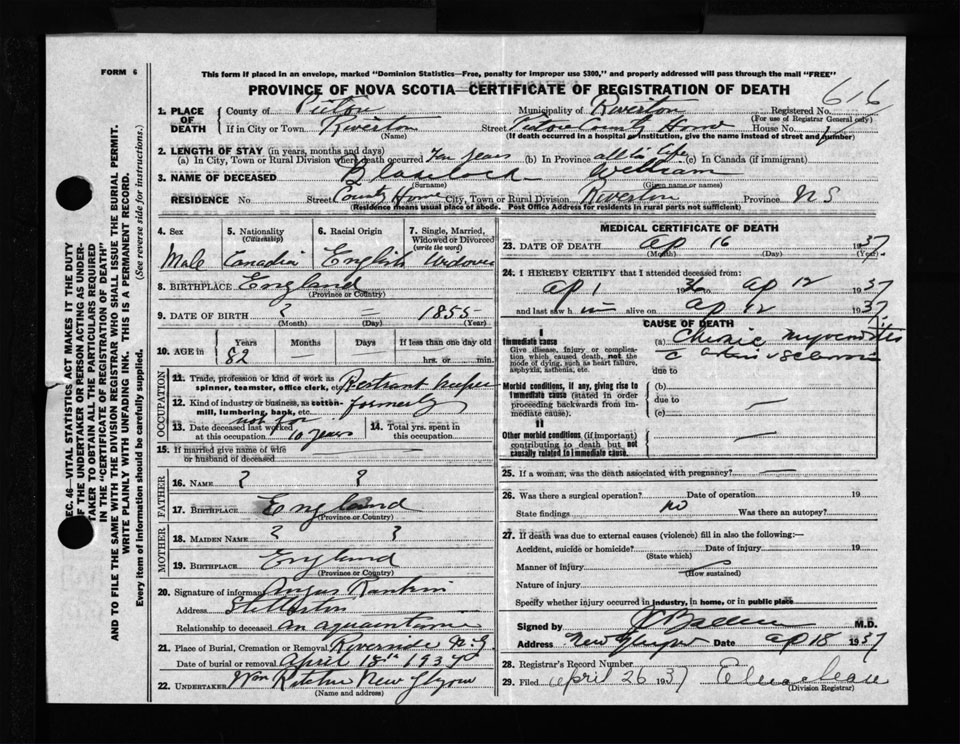 FORM 6
This form if placed in an envelope, marked "Dominion Statistics—Free, penalty for improper use $300," and properly addressed will pass through the mail "FREE"
PROVINCE OF NOVA SCOTIA—CERTIFICATE OF REGISTRATION OF DEATH
616
1. PLACE OF DEATH County of Pictou Municipality of Riverton Registered No.
(For use of Registrar General only)
If in City or Town Riverton Street Pictou County Home House No.
(Name) (If death occurred in a hospital or institution, give the name instead of street and number)
2. LENGTH OF STAY (in years, months and days)
(a) In City, Town or Rural Division where death occurred Ten years (b) In Province all his life (c) In Canada (if immigrant)
3. NAME OF DECEASED Blacklock William
(Surname) (Given name or names)
RESIDENCE No. Street County Home City, Town or Rural Division Riverton Province N S
(Residence means usual place of abode. Post Office Address for residents in rural parts not sufficient)
4. Sex 5. Nationality (Citizenship) 6. Racial Origin 7. Single, Married, Widowed or Divorced (write the word)
Male Canadian English Widower
8. BIRTHPLACE England
(Province or Country)
9. DATE OF BIRTH ? — 1855
(Month) (Day) (Year)
10. AGE in Years Months Days If less than one day old
82 — hrs. or min.
OCCUPATION
11. Trade, profession or kind of work as spinner, teamster, office clerk, etc. Restrant keeper
12. Kind of industry or business, as cotton-mill, lumbering, bank, etc. formerly
13. Date deceased last worked at this occupation not for 10 years
14. Total yrs. spent in this occupation
15. If married give name of wife or husband of deceased —
FATHER
16. NAME ? ?
17. BIRTHPLACE England
(Province or Country)
MOTHER
18. MAIDEN NAME ? ?
19. BIRTHPLACE England
(Province or Country)
20. Signature of informant Angus Rankin
Address Stellarton
Relationship to deceased an aquaintance
21. Place of Burial, Cremation or Removal Riverside N.G.
Date of burial or removal April 18th 1937
22. UNDERTAKER Wm Ritchie New Glasgow
(Name and address)
MEDICAL CERTIFICATE OF DEATH
23. DATE OF DEATH Ap 16 1937
(Month) (Day) (Year)
24. I HEREBY CERTIFY that I attended deceased from:
Ap 1 1936 to Ap 12 1937
and last saw him alive on Ap 12 1937
CAUSE OF DEATH
I
Immediate cause
Give disease, injury or complication which caused death, not the mode of dying, such as heart failure, asphyxia, asthenia, etc.
(a) Chronic myocarditis
due to
Morbid conditions, if any, giving rise to immediate cause (stated in order proceeding backwards from immediate cause).
(b)
due to
(c)
II
Other morbid conditions (if important) contributing to death but not causally related to immediate cause.
25. If a woman, was the death associated with pregnancy? —
26. Was there a surgical operation? Date of operation 19
State findings no Was there an autopsy?
27. If death was due to external causes (violence) fill in also the following:—
Accident, suicide or homicide? Date of injury 19
(State which)
Manner of injury
(How sustained)
Nature of injury
Specify whether injury occurred in industry, in home, or in public place
Signed by M.D.
Address New Glasgow Date Ap 18 1937
28. Registrar's Record Number
29. Filed April 26 1937
(Division Registrar)
SEC. 46—VITAL STATISTICS ACT MAKES IT THE DUTY
OF THE UNDERTAKER OR PERSON ACTING AS UNDERTAKER TO OBTAIN ALL THE PARTICULARS REQUIRED
IN THE "CERTIFICATE OF REGISTRATION OF DEATH"
AND TO FILE THE SAME WITH THE DIVISION REGISTRAR WHO SHALL ISSUE THE BURIAL PERMIT.
WRITE PLAINLY WITH UNFADING INK. THIS IS A PERMANENT RECORD.
Every item of information should be carefully supplied. (See reverse side for instructions.)